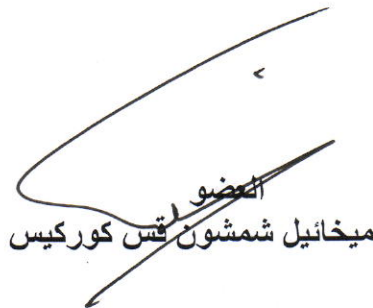 العضو
ميخائيل شمشون قس كوركيس